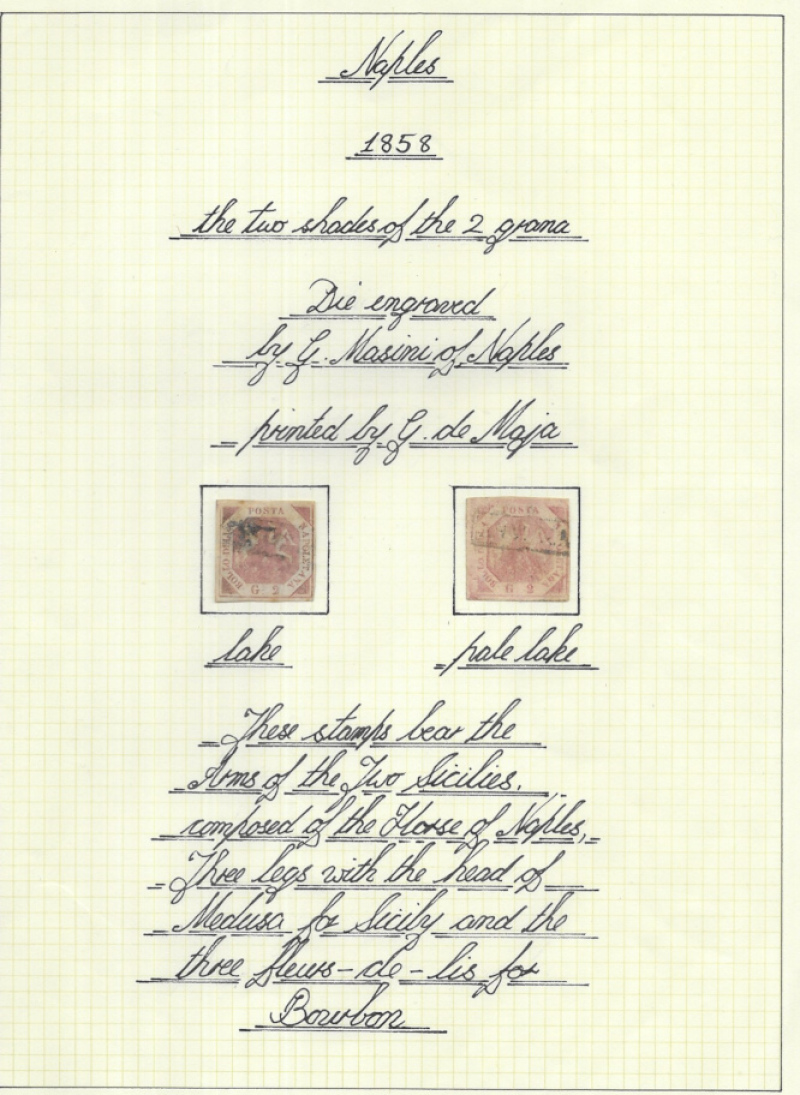 Naples
1858
the two shades of the 2 grana
Die engraved
by G. Masini of Naples
printed by G. de Maja
POSTA
BOLLO DELLA
NAPOLETANA
G 2
POSTA
BOLLO DELLA
NAPOLETANA
G 2
lake
pale lake
These stamps bear the
Arms of the Two Sicilies,
composed of the Horse of Naples,
Three legs with the head of
Medusa for Sicily and the
three fleurs-de-lis for
Bourbon